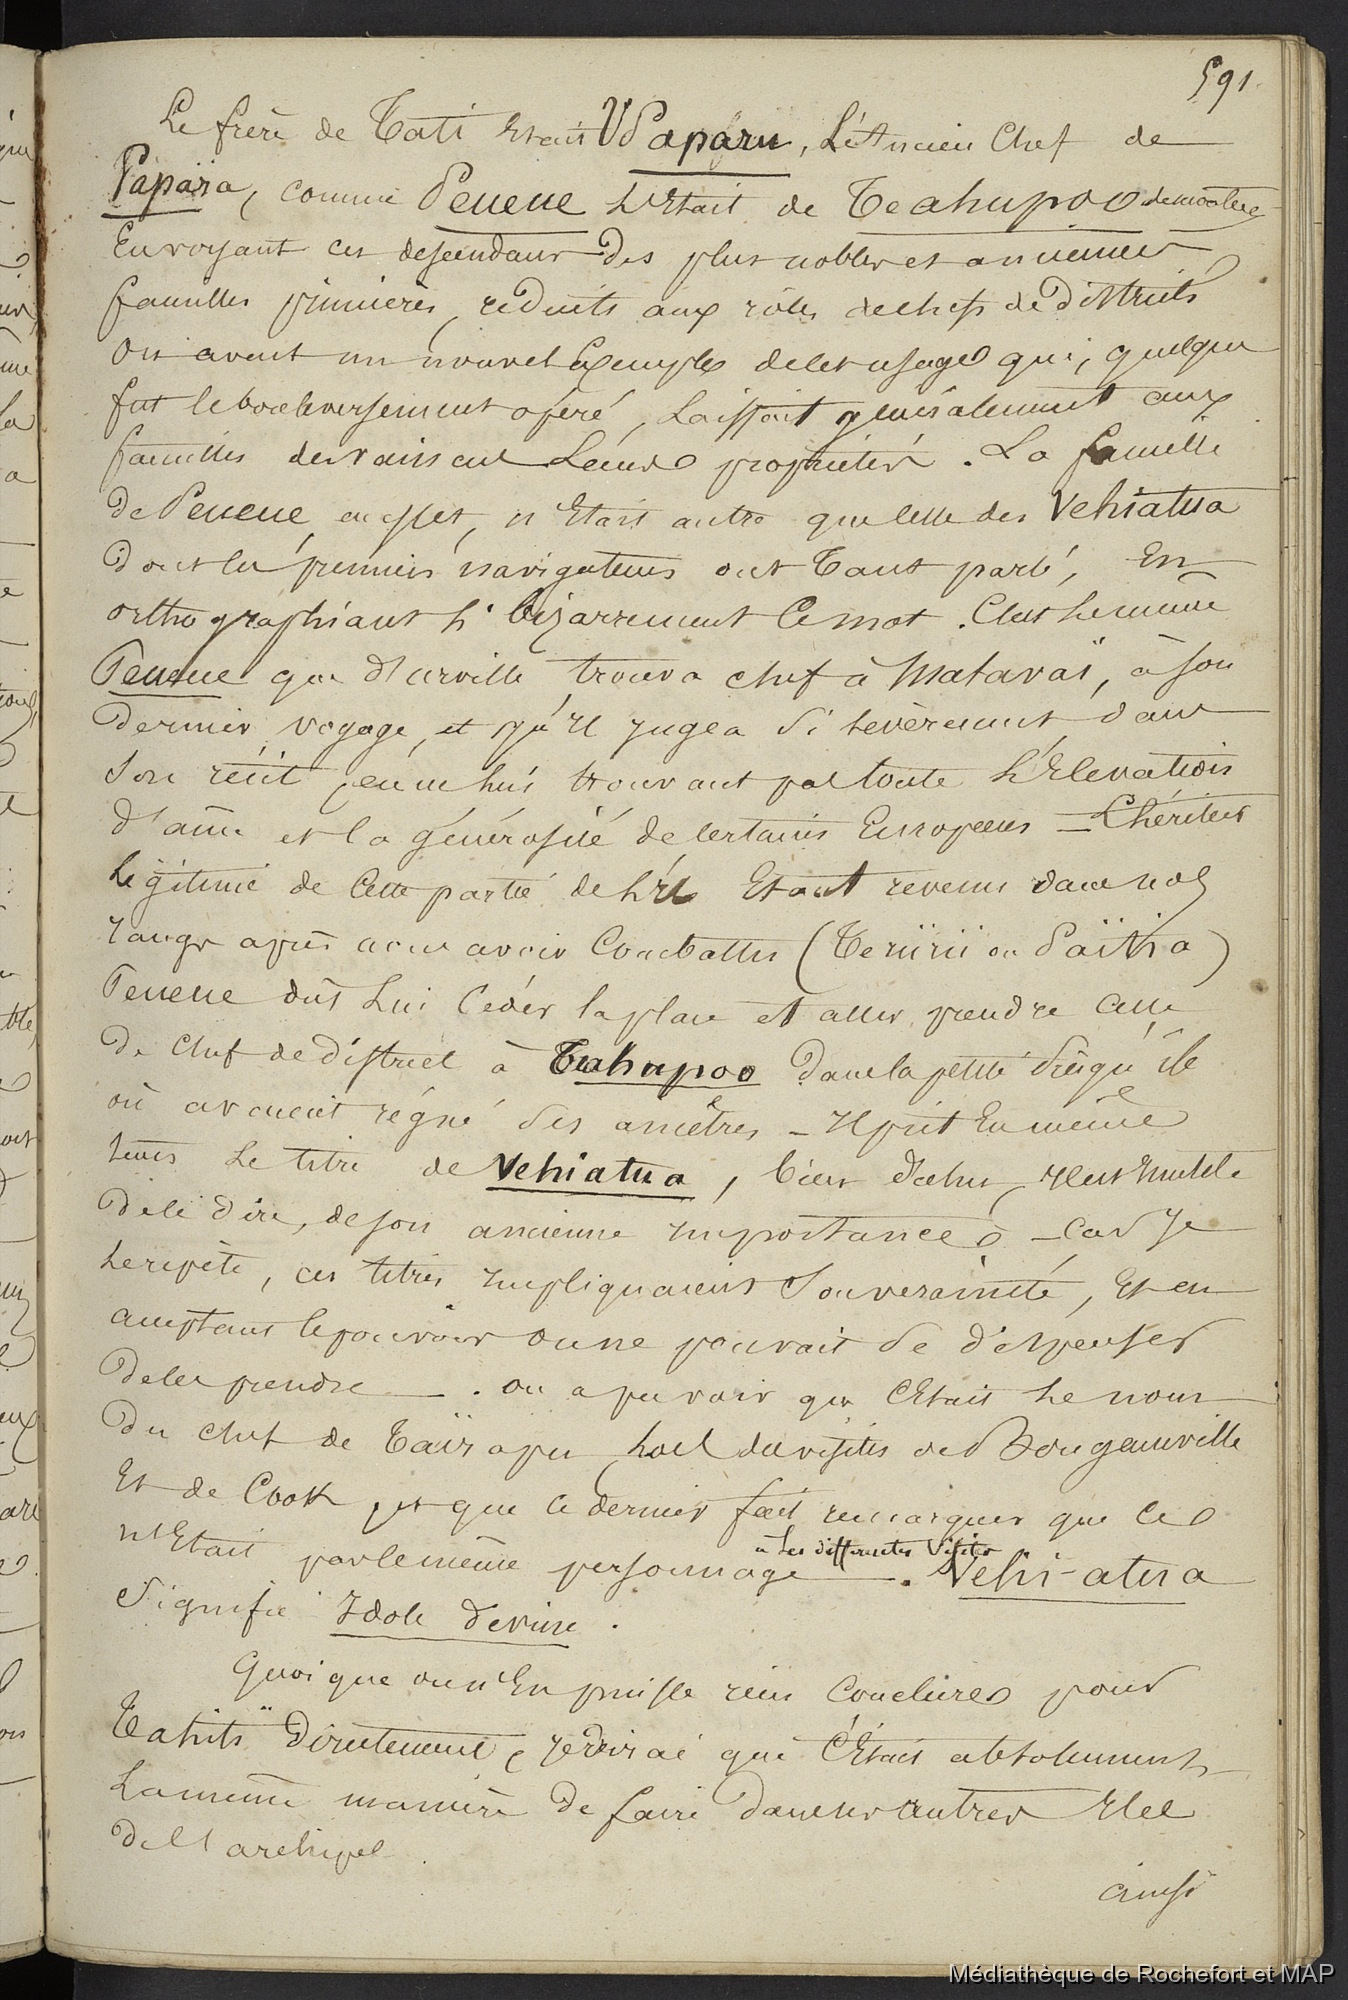 591.
Le frère de Tati était Upaparu, l'ancien Chef de
Papara, comme Peueue l'était de Teahupoo
En voyant ces descendans des plus nobles et anciennes
familles princières, réduits aux rôles de chefs de districts
on avait un nouvel exemple de cet usage qui, quelque
fut le bouleversement opéré, laissait généralement aux
familles des vaincus leurs propriétés. La famille
de Peueue, en effet, n'était autre que celle des Vehiatua
dont les premiers navigateurs ont tant parlé, en
orthographiant si bizarrement ce mot. C'est le même
Peueue que d'Urville trouva chef à Matavaï, à son
dernier voyage, et qu'il jugea si sévèrement dans
son récit, en ne lui trouvant pas toute l'élévation
d'âme et la générosité de certains Européens — L'héritier
légitime de cette partie de l'île étant revenu dans nos
rangs après nous avoir combattu (Teriirii ou Païtia)
Peueue dût lui céder la place et aller prendre celle
de chef de district à Teahupoo dans la petite presqu'île
où avaient régné ses ancêtres — Il prit en même
tems le titre de Vehiatua, bien déchu, il est inutile
de le dire, de son ancienne importance — car je
le répète, ces titres impliquaient souveraineté, et en
acceptant le pouvoir on ne pouvait se dispenser
de les prendre — . on a pu voir que c'était le nom
du chef de Taïrapu lors des visites de Bougainville
et de Cook, et que ce dernier fait remarquer que ce
n'était pas le même personnage à ses différentes visites. Vehi-atua
signifie Idole devine.
Quoique on n'en puisse rien conclure pour
Tahiti directement, je dirai que c'était absolument
la même manière de faire dans les autres îles
de l'archipel.
ainsi
Médiathèque de Rochefort et MAP